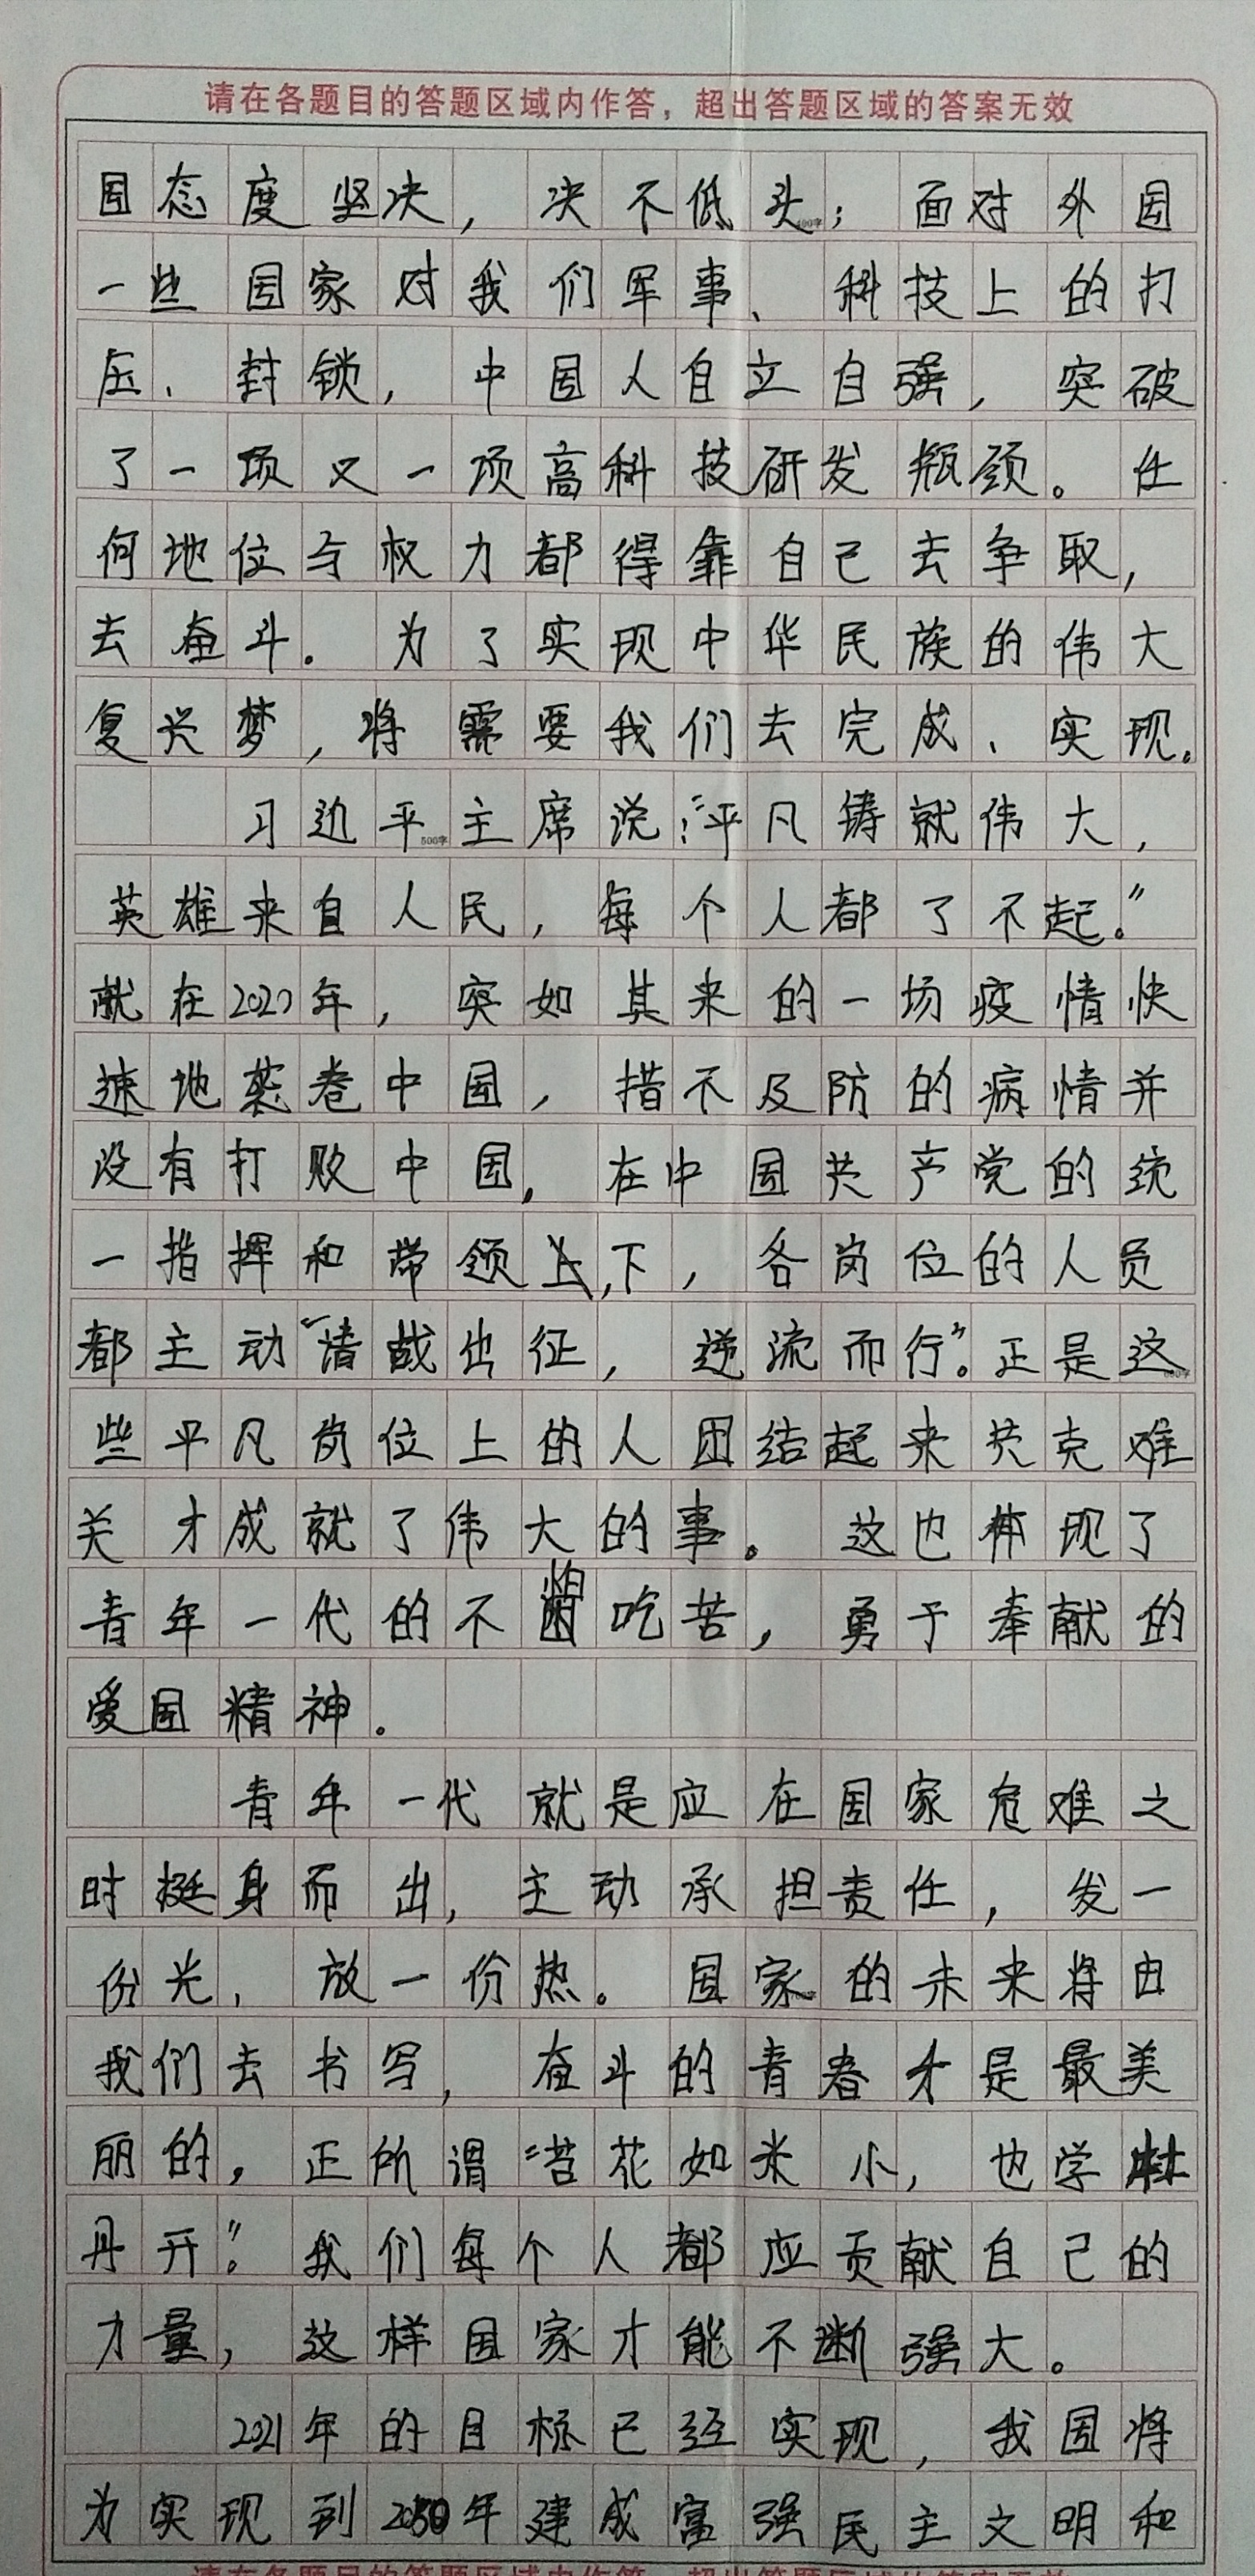 请在各题目的答题区域内作答，超出答题区域的答案无效
国态度坚决，决不低头；面对外国
一些国家对我们军事、科技上的打
压、封锁，中国人自立自强，突破
了一项又一项高科技研发瓶颈。任
何地位与权力都得靠自己去争取，
去奋斗。为了实现中华民族的伟大
复兴梦，将需要我们去完成、实现。
习近平主席说：“平凡铸就伟大，
500字
英雄来自人民，每个人都了不起。”
就在2020年，突如其来的一场疫情快
速地袭卷中国，措不及防的病情并
没有打败中国，在中国共产党的统
一指挥和带领下，各岗位的人员
都主动“请战出征，逆流而行”。正是这
600字
些平凡岗位上的人团结起来共克难
关才成就了伟大的事。这也体现了
青年一代的不怕吃苦，勇于奉献的
爱国精神。
青年一代就是应在国家危难之
时挺身而出，主动承担责任，发一
份光，放一份热。国家的未来将由
我们去书写，奋斗的青春才是最美
丽的，正所谓“苔花如米小，也学牡
丹开”。我们每个人都应贡献自己的
力量，这样国家才能不断强大。
2021年的目标已经实现，我国将
为实现到2050年建成富强民主文明和